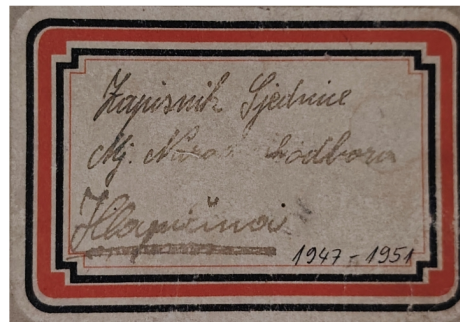 Zapisnik Sjednice
Mj. Narod. odbora
Hlapičina
1947-1951